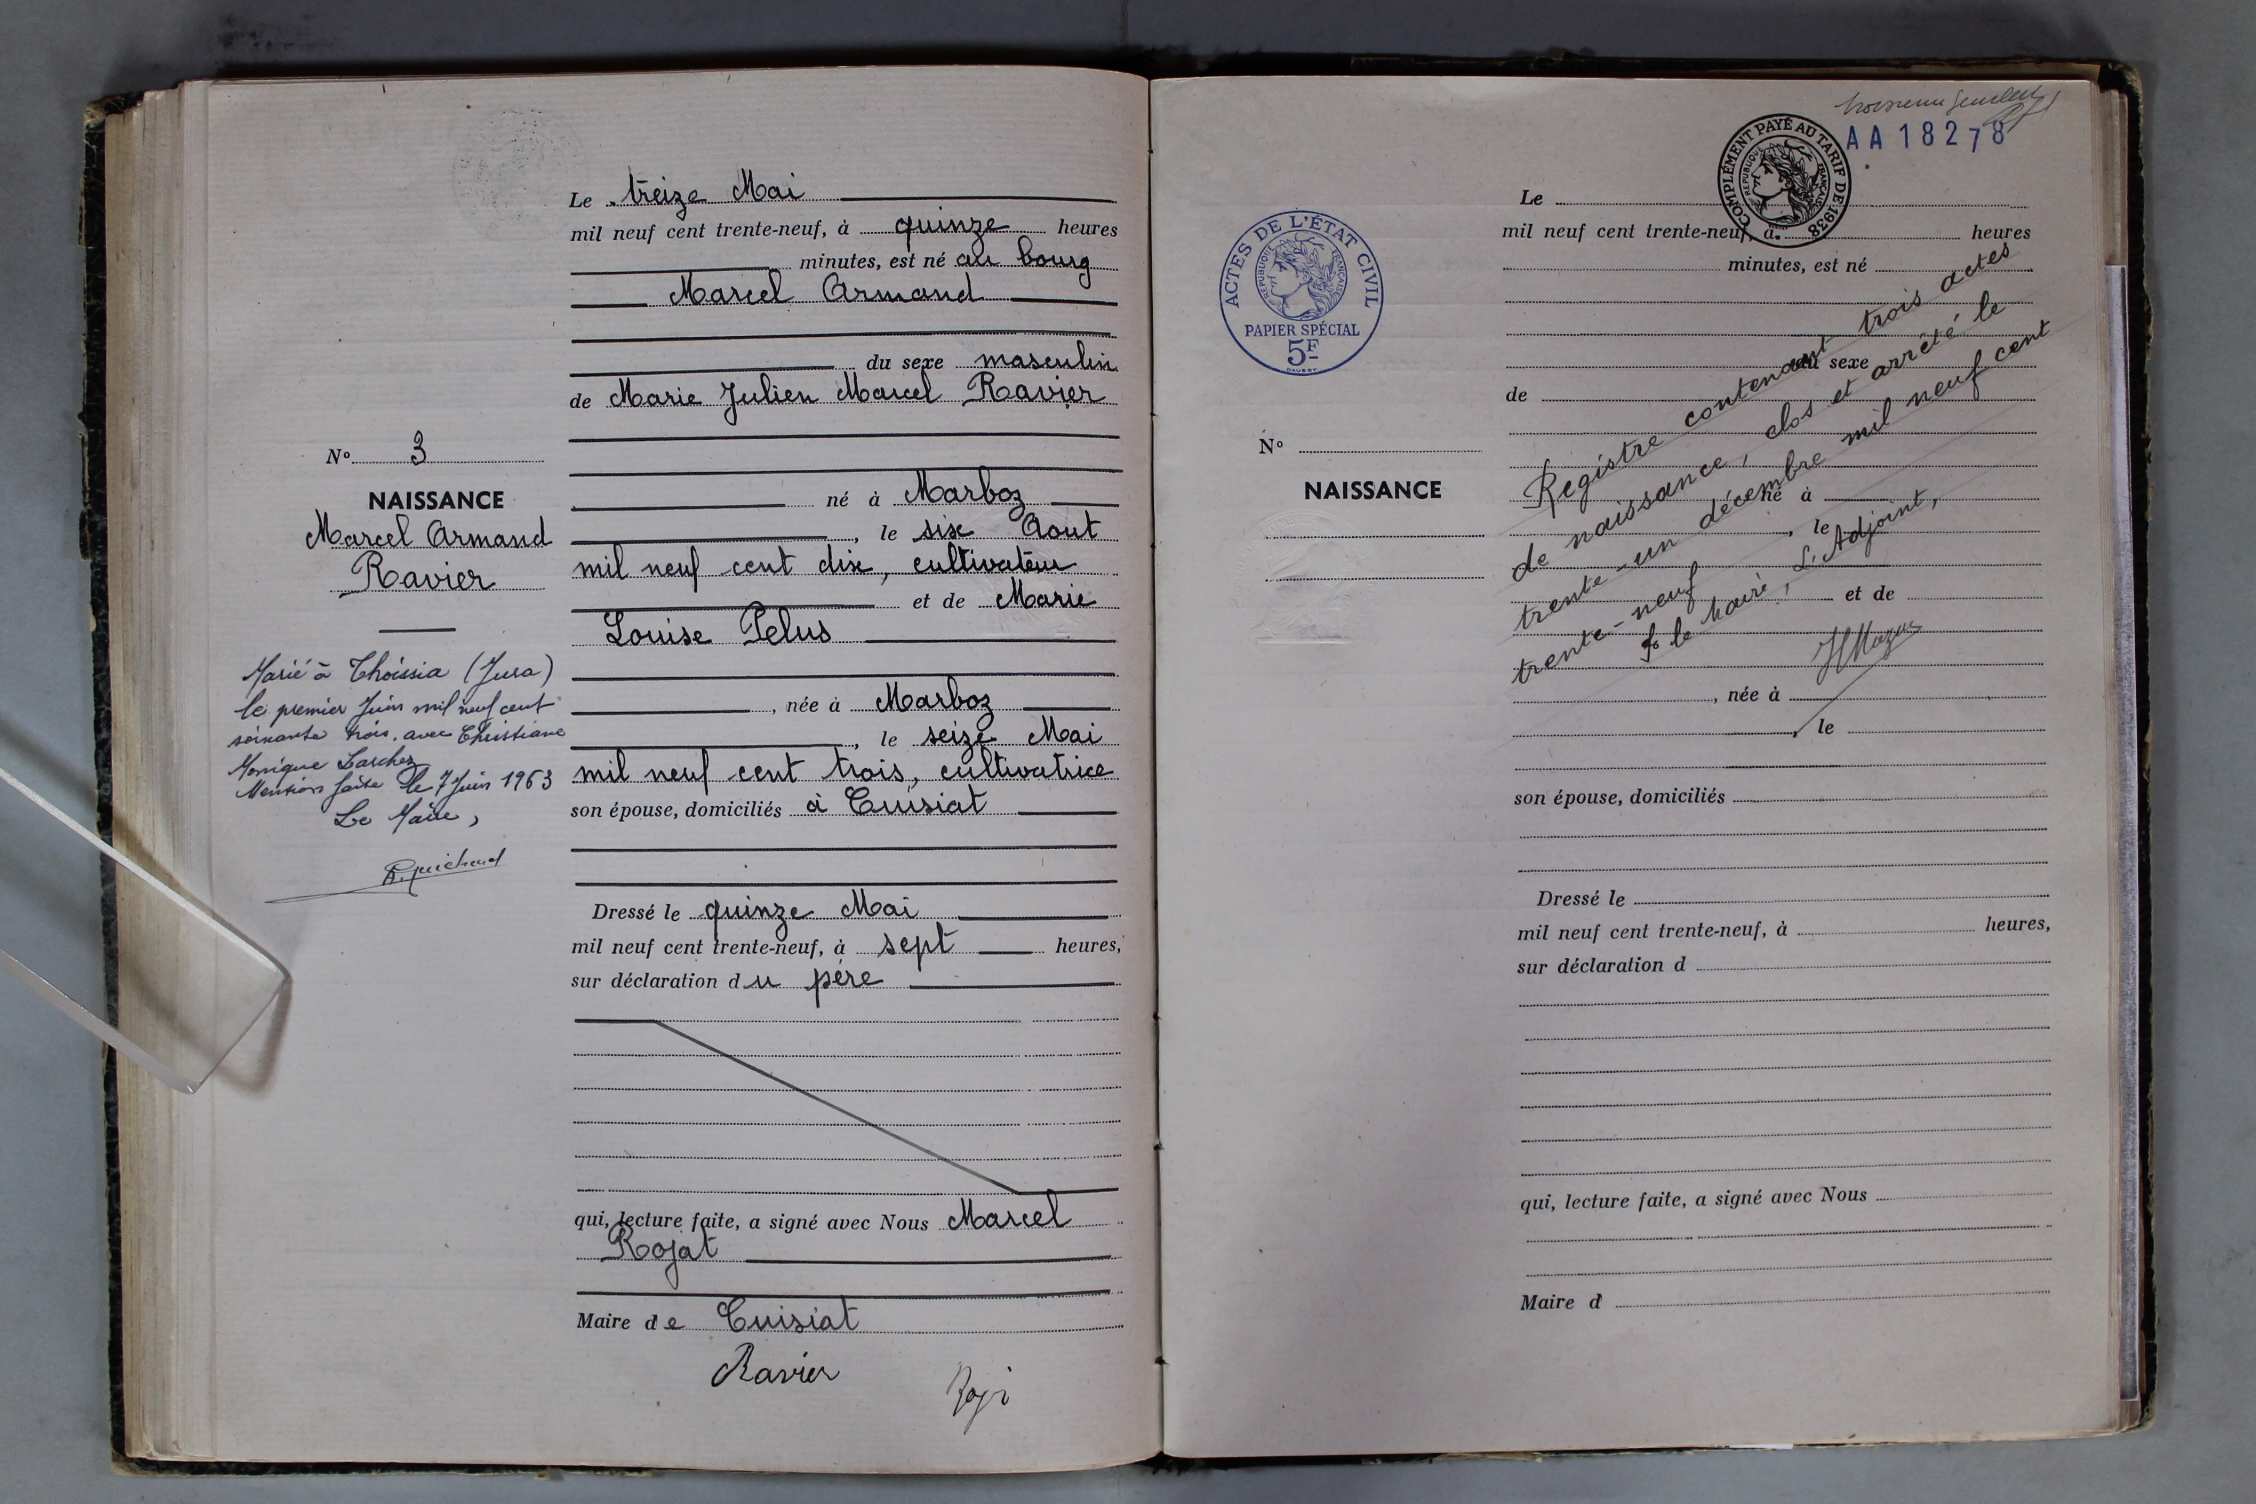 Le treize Mai
mil neuf cent trente-neuf, à quinze heures
minutes, est né au bourg
Marcel Armand
du sexe masculin
de Marie Julien Marcel Ravier
né à Marboz
, le six Aout
mil neuf cent dix, cultivateur
et de Marie
Louise Pelus
, née à Marboz
, le seize Mai
mil neuf cent trois, cultivatrice
son épouse, domiciliés à Cuisiat
Dressé le quinze Mai
mil neuf cent trente-neuf, à sept heures,
sur déclaration du père
qui, lecture faite, a signé avec Nous Marcel
Rojat
Maire de Cuisiat
Ravier
No 3
NAISSANCE
Marcel Armand
Ravier
Marié à Thoissia (Jura)
le premier Juin mil neuf cent
soixante trois, avec Christiane
Monique
Mention faite le 7 Juin 1963
Le Maire,
AA 18278
COMPLÉMENT PAYÉ AU TARIF DE 1938
REPUBLIQUE FRANÇAISE
ACTES DE L'ÉTAT CIVIL
REPUBLIQUE FRANÇAISE
PAPIER SPÉCIAL
5F
No
NAISSANCE
Le
mil neuf cent trente-neuf, à heures
minutes, est né
du sexe
de
né à
, le
et de
, née à
, le
son épouse, domiciliés
Dressé le
mil neuf cent trente-neuf, à heures,
sur déclaration d
qui, lecture faite, a signé avec Nous
Maire d
Registre contenant trois actes
de naissance, clos et arrêté le
trente-un décembre mil neuf cent
trente-neuf
le Maire, L'Adjoint,